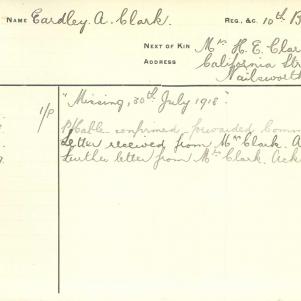 NAME Eardley A. Clark. REG. &C. 10th B
NEXT OF KIN Mrs H. E. Clar
ADDRESS California Str
Nailsworth
"Missing, 30th July 1918".
1/P Cable confirmed forwarded Comm
Letter received from Mrs Clark. A
Further letter from Mrs Clark. Ack